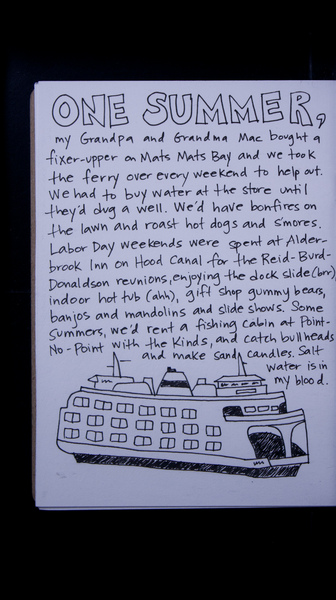 ONE SUMMER,
my Grandpa and Grandma Mac bought a
fixer-upper on Mats Mats Bay and we took
the ferry over every weekend to help out.
We had to buy water at the store until
they'd dug a well. We'd have bonfires on
the lawn and roast hot dogs and s'mores.
Labor Day weekends were spent at Alder-
brook Inn on Hood Canal for the Reid-Burd-
Donaldson reunions, enjoying the dock slide (brr)
indoor hot tub (ahh), gift shop gummy bears,
banjos and mandolins and slide shows. Some
summers, we'd rent a fishing cabin at Point-
No-Point with the Kinds, and catch bullheads
and make sand candles. Salt
water is in
my blood.